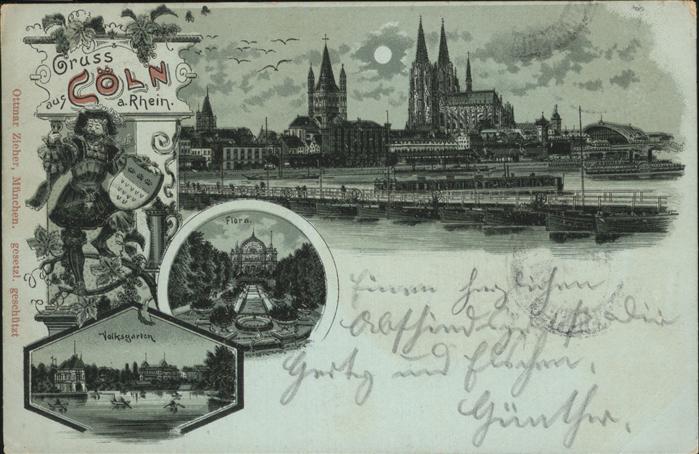 Gruss
aus CÖLN
a. Rhein.
Ottmar Zieher, München. gesetzl. geschützt
Flora.
Volksgarten.
Einen herzlichen
Abschiedsgruß Dir
und Elschen,
Günther.